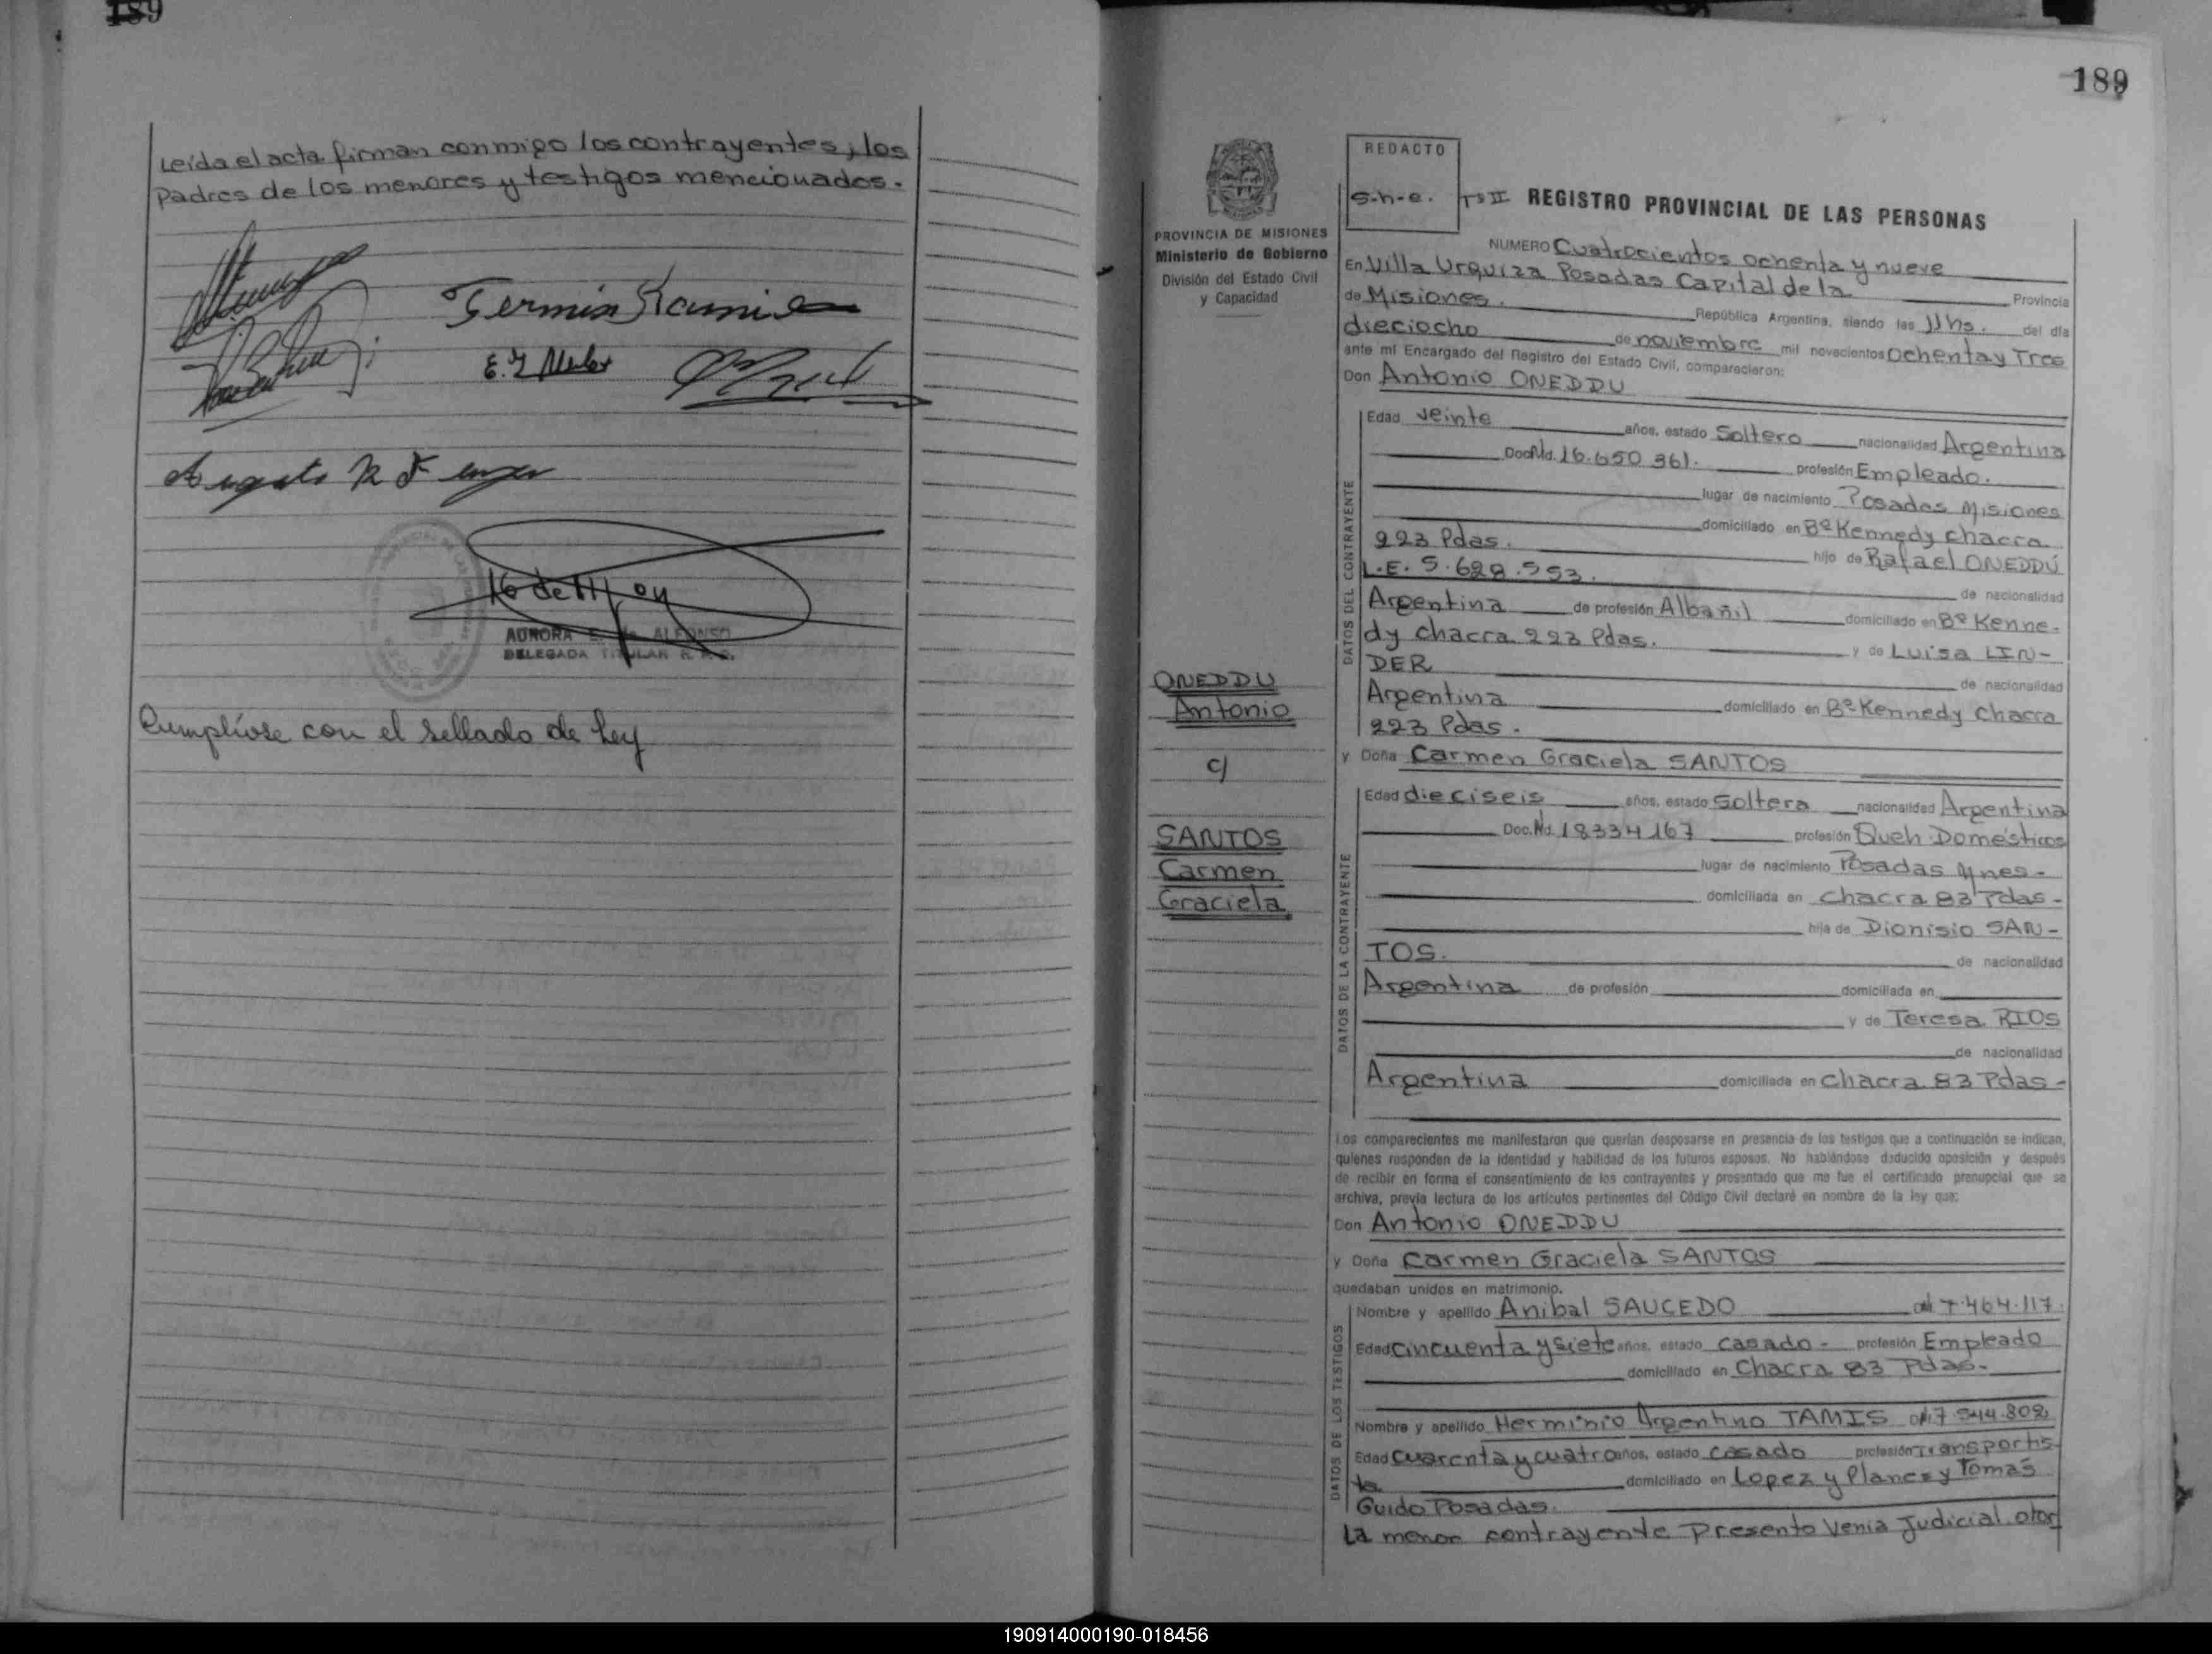 189
Leída el acta firman conmigo los contrayentes, los
Padres de los menores y testigos mencionados.
AURORA E. de ALFONSO
DELEGADA TITULAR R. P. P.
Cumplióse con el sellado de Ley
189
PROVINCIA DE MISIONES
Ministerio de Gobierno
División del Estado Civil
y Capacidad
ONEDDU
Antonio
c/
SANTOS
Carmen
Graciela
REDACTO
S-h-e.
Tº II REGISTRO PROVINCIAL DE LAS PERSONAS
NUMERO Cuatrocientos ochenta y nueve
En Villa Urquiza Posadas Capital de la Provincia
de Misiones. República Argentina, siendo las 11hs. del día
dieciocho de noviembre mil novecientos ochenta y Tres
ante mí Encargado del Registro del Estado Civil, comparecieron:
Don Antonio ONEDDU
DATOS DEL CONTRAYENTE
Edad veinte años, estado Soltero nacionalidad Argentina
Doc.Nd. 16.650 361. profesión Empleado.
lugar de nacimiento Posadas Misiones
domiciliado en Bº Kennedy chacra
223 Pdas. hijo de Rafael ONEDDÚ
L.E. 5.628.553. de nacionalidad
Argentina de profesión Albañil domiciliado en Bº Kenne-
dy chacra 223 Pdas. y de Luisa LIN-
DER de nacionalidad
Argentina domiciliado en Bº Kennedy Chacra
223 Pdas.
y Doña Carmen Graciela SANTOS
DATOS DE LA CONTRAYENTE
Edad dieciseis años, estado Soltera nacionalidad Argentina
Doc.Nd. 18334167 profesión Queh. Domésticos
lugar de nacimiento Posadas Mnes-
domiciliada en Chacra 83 Pdas-
hija de Dionisio SAN-
TOS. de nacionalidad
Argentina de profesión domiciliada en
y de Teresa RIOS
de nacionalidad
Argentina domiciliada en Chacra 83 Pdas-
Los comparecientes me manifestaron que querían desposarse en presencia de los testigos que a continuación se indican,
quienes responden de la identidad y habilidad de los futuros esposos. No habiéndose deducido oposición y después
de recibir en forma el consentimiento de los contrayentes y presentado que me fue el certificado prenupcial que se
archiva, previa lectura de los artículos pertinentes del Código Civil declaré en nombre de la ley que:
Don Antonio ONEDDU
y Doña Carmen Graciela SANTOS
quedaban unidos en matrimonio.
DATOS DE LOS TESTIGOS
Nombre y apellido Anibal SAUCEDO 7.464.117.
Edad cincuenta y siete años, estado casado - profesión Empleado
domiciliado en Chacra 83 Pdas-
Nombre y apellido Herminio Argentino TAMIS 7 544.802
Edad Cuarenta y cuatro años, estado Casado profesión Transportis
ta domiciliado en Lopez y Planes y Tomás
Guido Posadas.
La menor contrayente presento Venia Judicial otor
190914000190-018456